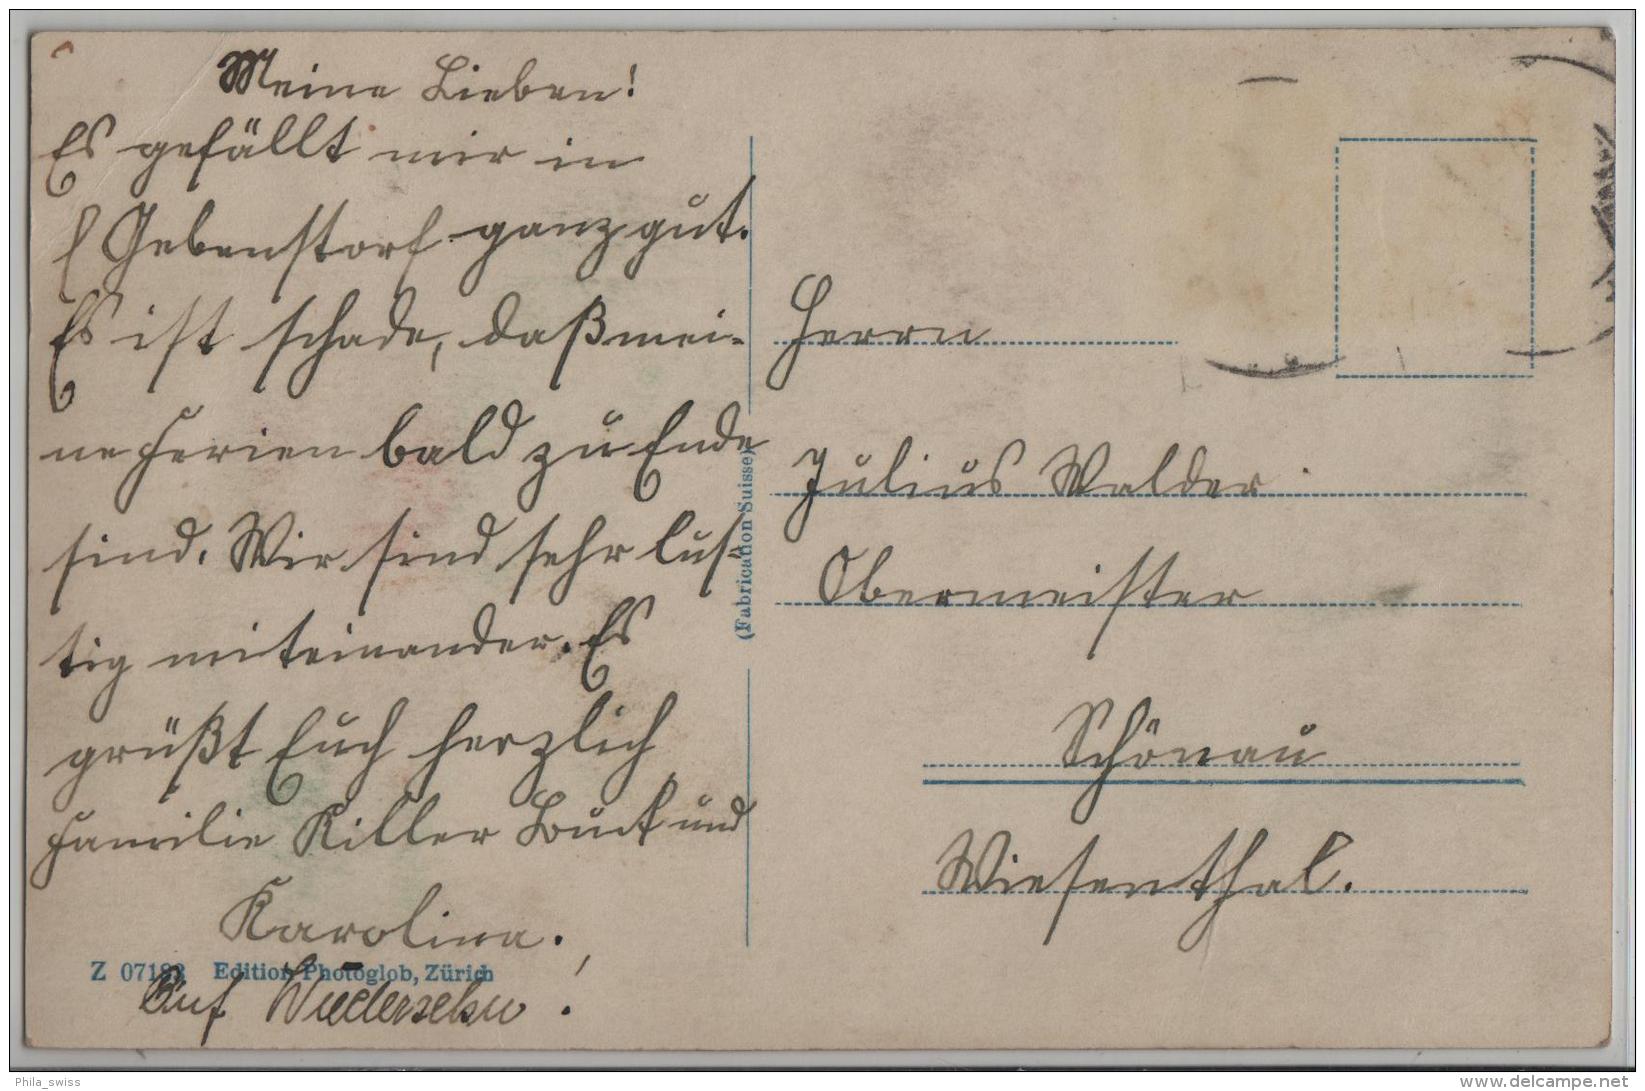 Meine Lieben!
Es gefällt mir in
Gebenstorf ganz gut.
Es ist schade, daß mei-
ne Ferien bald zu Ende
sind. Wir sind sehr lus-
tig miteinander. Es
grüßt Euch herzlich
Familie Killer und
Karolina.
Auf Wiedersehn!
Z 07183 Edition Photoglob, Zürich
(Fabrication Suisse)
Herrn
Julius Walder
Obermeister
Schönau
Wiesenthal.
Phila_swiss
www.delcampe.net